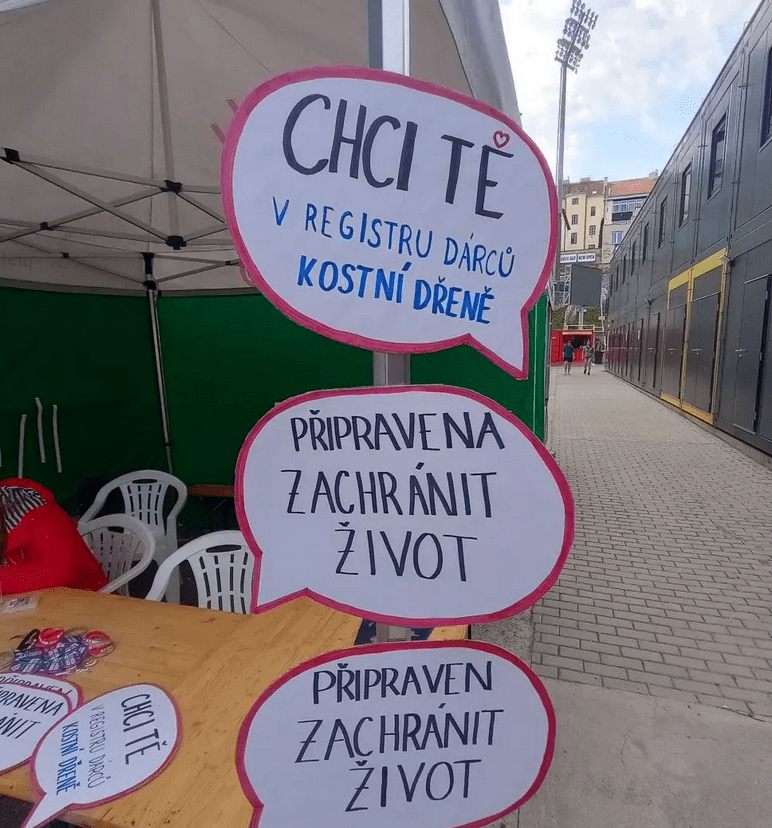 CHCI TĚ
V REGISTRU DÁRCŮ
KOSTNÍ DŘENĚ
PŘIPRAVENA
ZACHRÁNIT
ŽIVOT
PŘIPRAVEN
ZACHRÁNIT
ŽIVOT
CHCI TĚ
V REGISTRU DÁRCŮ
KOSTNÍ DŘENĚ